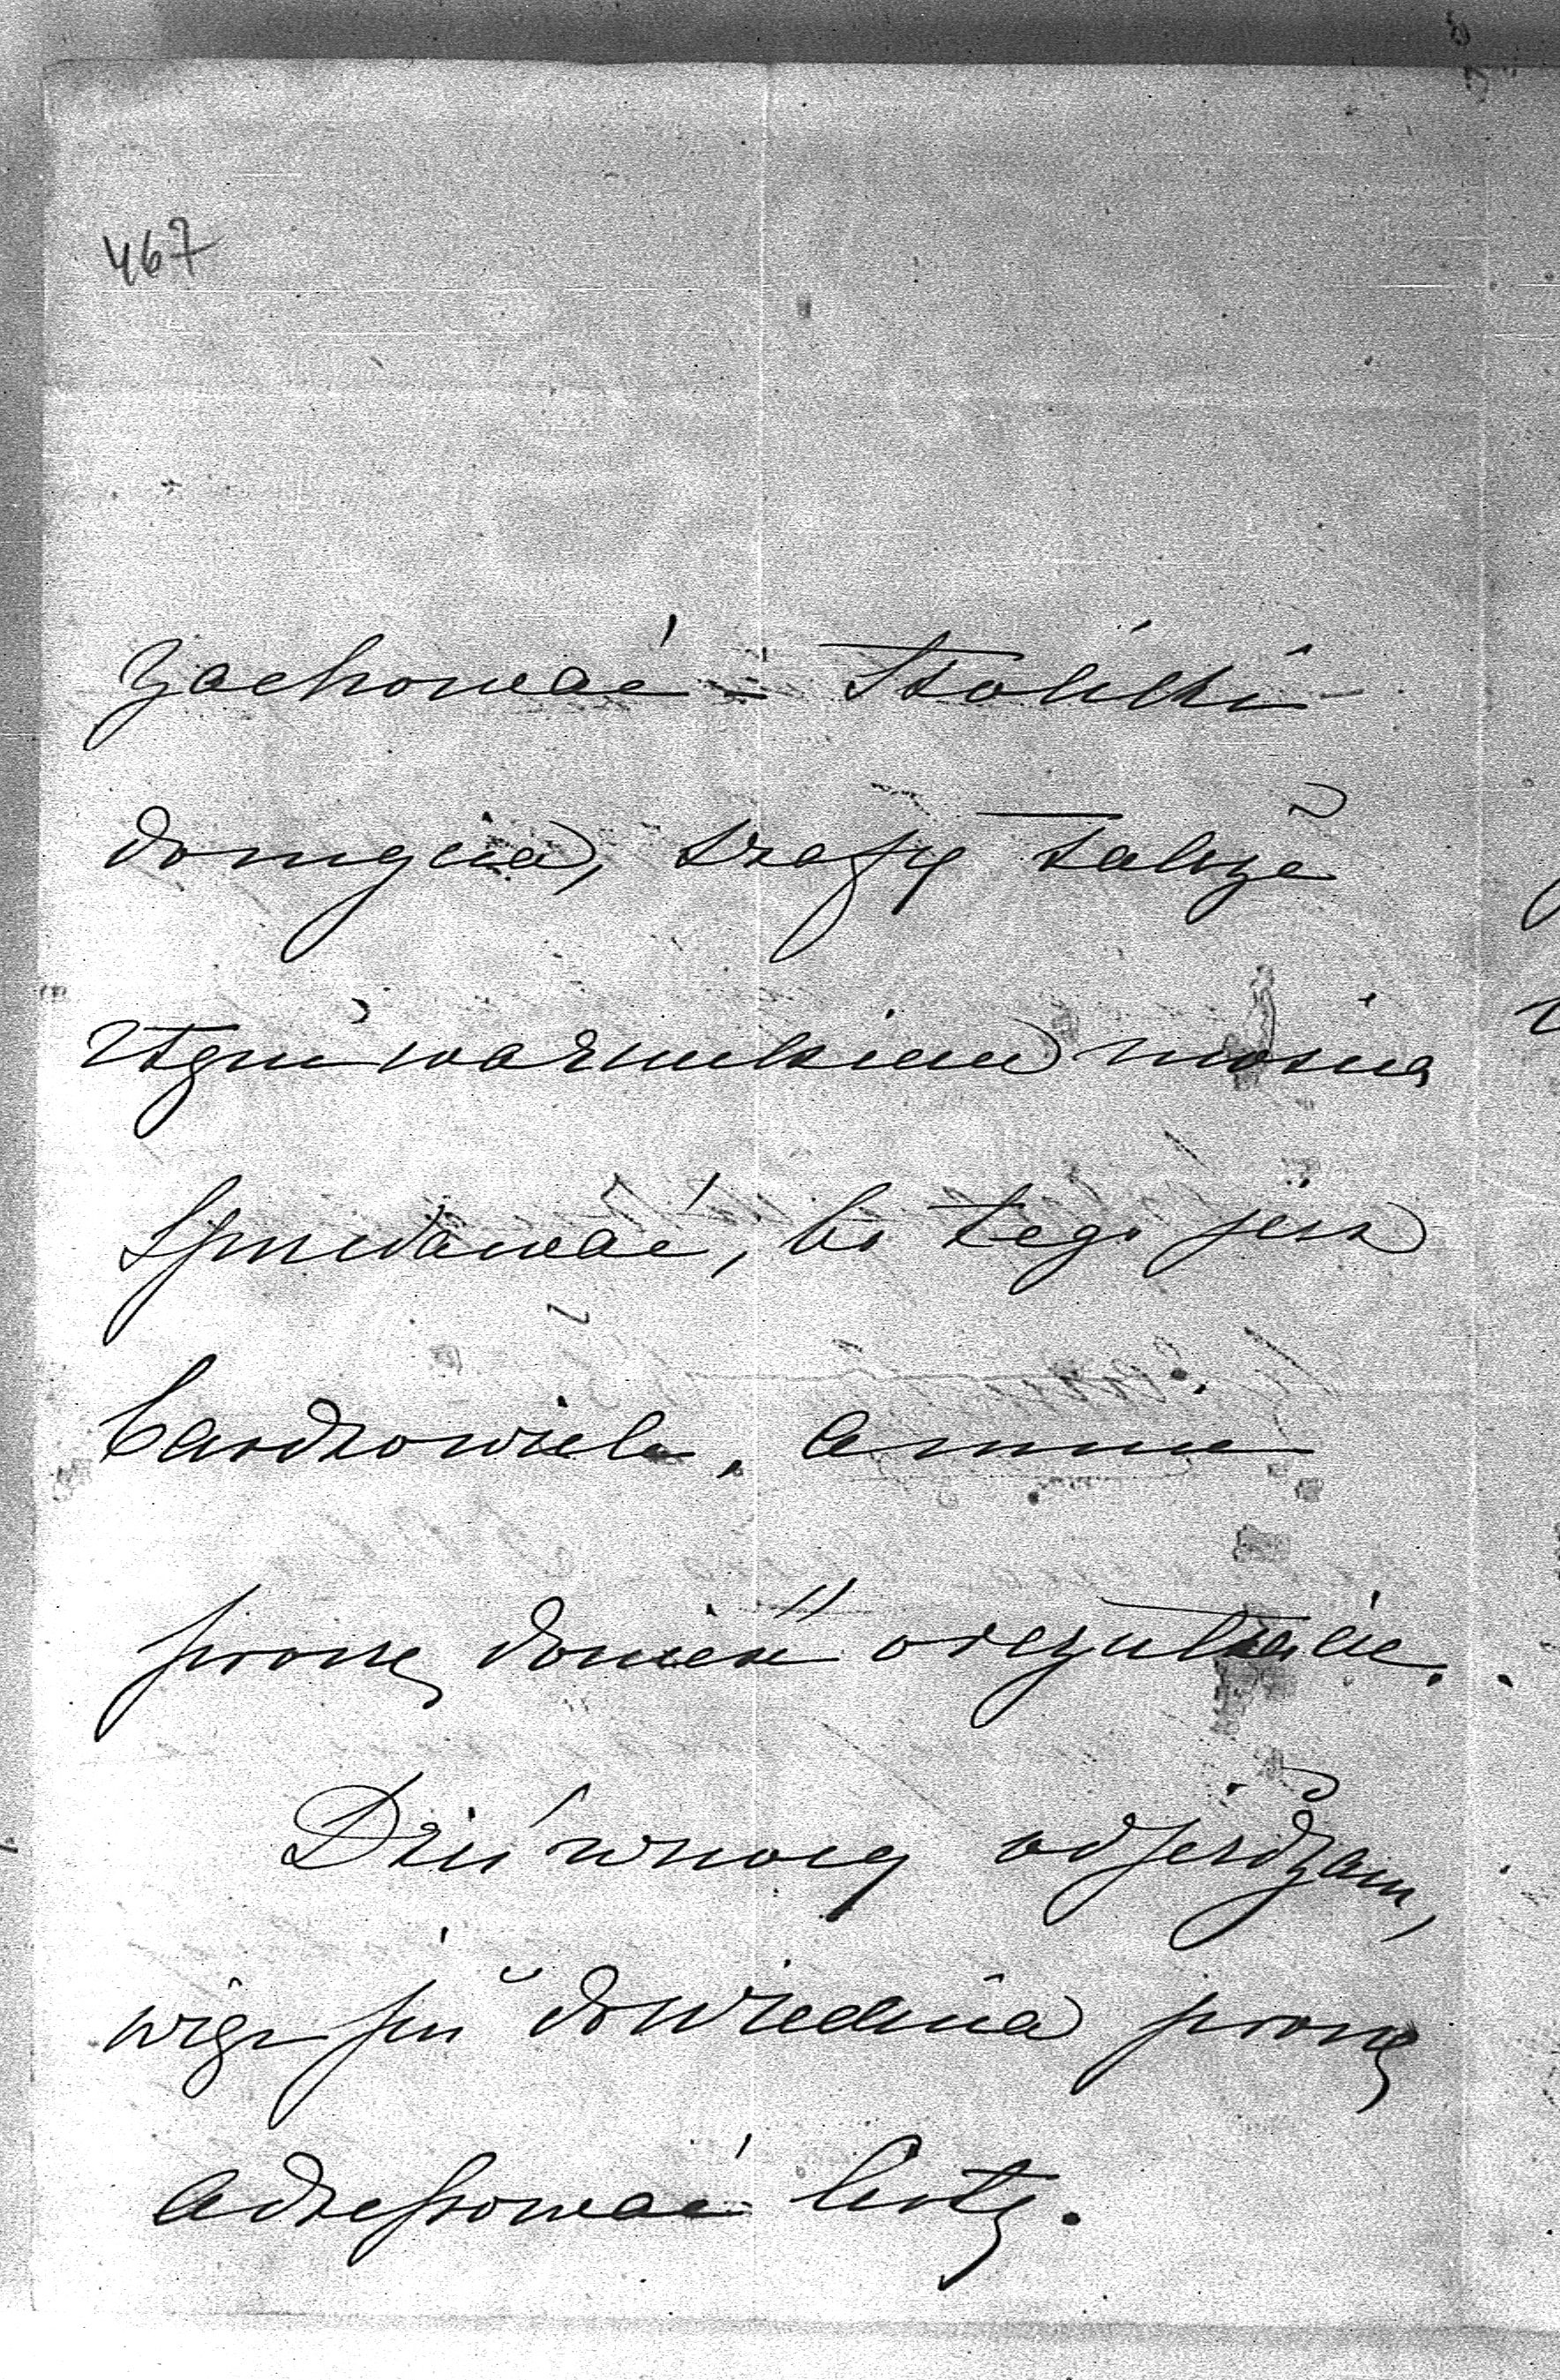 467
zachować – Stoliki
do mycia, szafy także
z tym warunkiem można
sprzedawać, bo tego jest
bardzo wiele, a mnie
proszę donieść o rezultacie.
Dziś w nocy odjeżdżam,
więc już do Wiednia proszę
adressować listy.